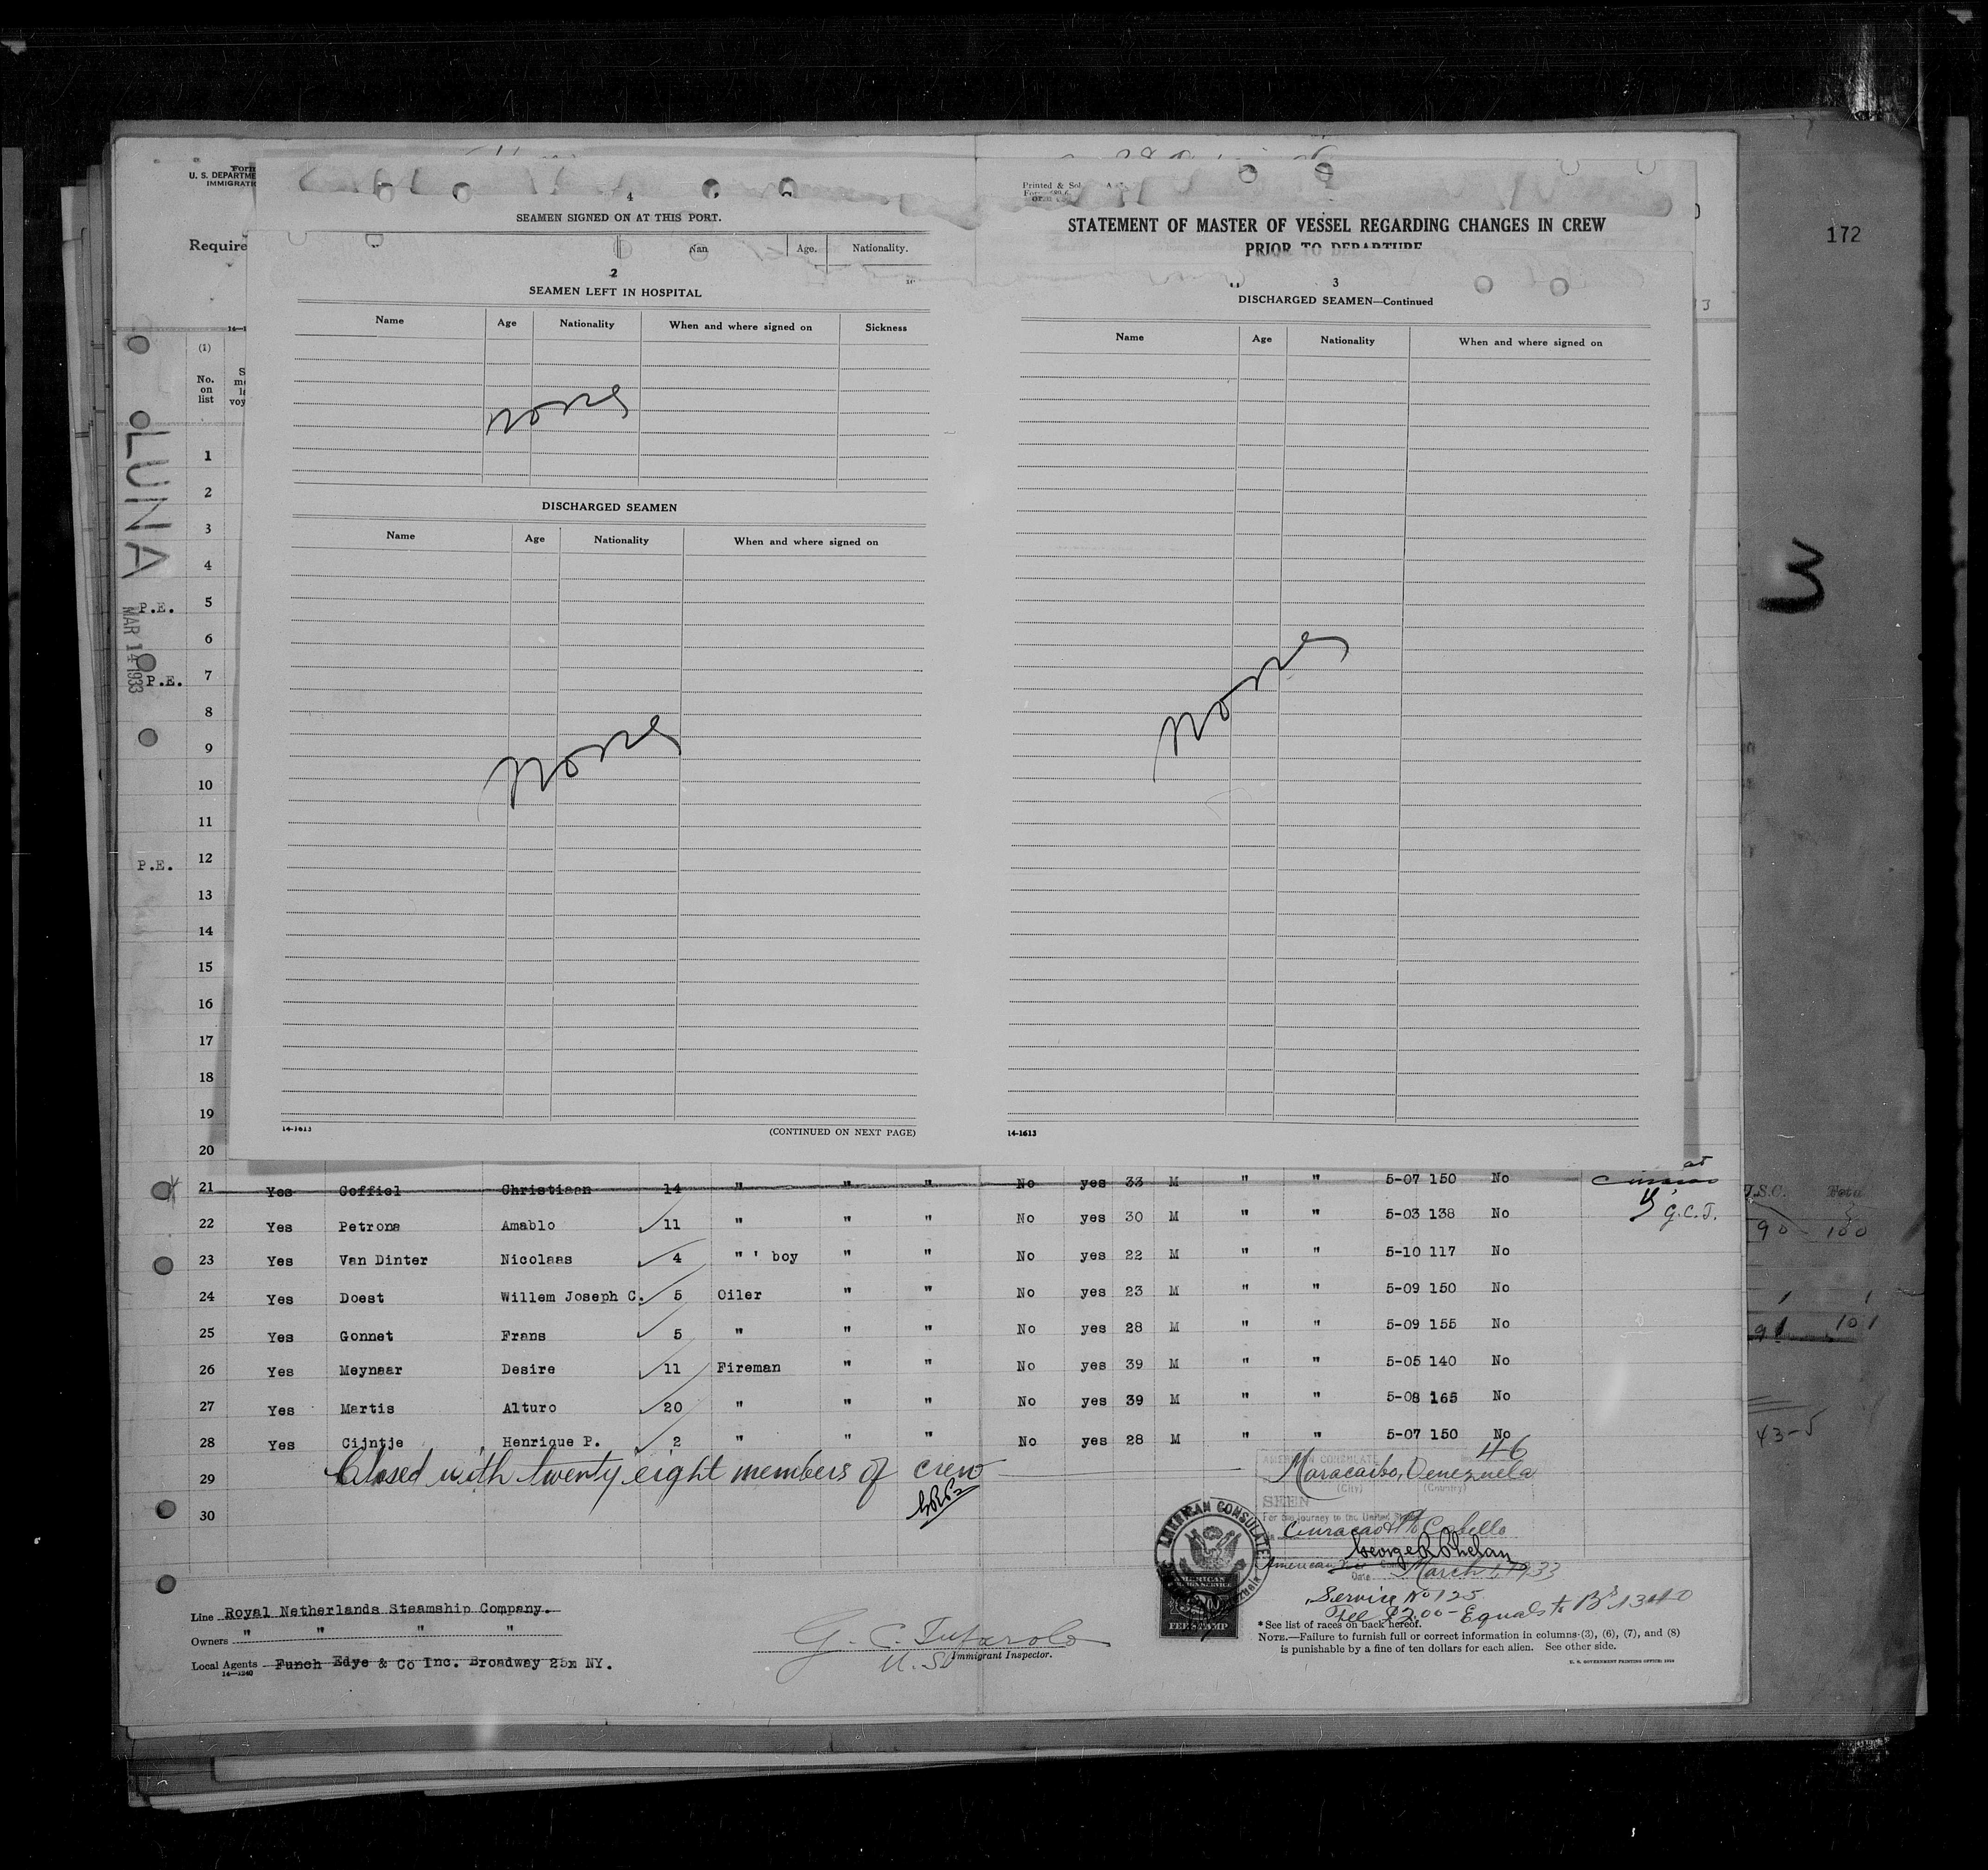 172
3
Form
U. S. DEPARTME
IMMIGRATI
Require
LUNA
MAR 14 1933
P.E.
P.E.
P.E.
4
SEAMEN SIGNED ON AT THIS PORT.
Nan Age. Nationality.
2
SEAMEN LEFT IN HOSPITAL
Name Age Nationality When and where signed on Sickness
None
DISCHARGED SEAMEN
Name Age Nationality When and where signed on
None
14-1613 (CONTINUED ON NEXT PAGE)
Printed & Sol
STATEMENT OF MASTER OF VESSEL REGARDING CHANGES IN CREW
PRIOR TO DEPARTURE
3
DISCHARGED SEAMEN—Continued
Name Age Nationality When and where signed on
None
14-1613
(1)
No.
on
list
1
2
3
4
5
6
7
8
9
10
11
12
13
14
15
16
17
18
19
20
21 Yes Coffiel Christiaan 14 " " " No yes 33 M " " 5-07 150 No
G.C.T.
22 Yes Petrona Amablo 11 " " " No yes 30 M " " 5-03 138 No
23 Yes Van Dinter Nicolaas 4 " ' boy " " No yes 22 M " " 5-10 117 No
24 Yes Doest Willem Joseph C. 5 Oiler " " No yes 23 M " " 5-09 150 No
25 Yes Gonnet Frans 5 " " " No yes 28 M " " 5-09 155 No
26 Yes Meynaar Desire 11 Fireman " " No yes 39 M " " 5-05 140 No
27 Yes Martis Alturo 20 " " " No yes 39 M " " 5-08 165 No
28 Yes Cijntje Henrique P. 2 " " " No yes 28 M " " 5-07 150 No
29 Closed with twenty eight members of crew
30
AMERICAN CONSULATE
46
Maracaibo, Venezuela
(City) (Country)
SEEN
For the journey to the United States
Curacao & Pto Cabello
George R Phelan
American Vice Consul
Date March 1, 1933
Service No 125
Fee $2.00 - Equals to Bs 13.40
AMERICAN CONSULATE
FEE STAMP
Line Royal Netherlands Steamship Company.
Owners " " " "
Local Agents Funch Edye & Co Inc. Broadway 25x NY.
14-1240
Immigrant Inspector.
* See list of races on back hereof.
NOTE.—Failure to furnish full or correct information in columns (3), (6), (7), and (8)
is punishable by a fine of ten dollars for each alien. See other side.
T.S.C. Total
90 100
91 101
43-5